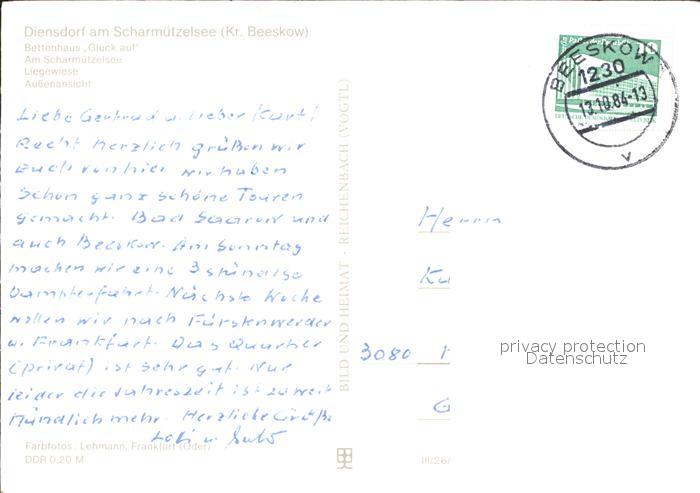 Diensdorf am Scharmützelsee (Kr. Beeskow)
Bettenhaus „Glück auf"
Am Scharmützelsee
Liegewiese
Außenansicht
Liebe Gertrud u. lieber Kurt!
Recht herzlich grüßen wir
Euch von hier wir haben
schon ganz schöne Touren
gemacht. Bad Saarow und
auch Beeskow. Am Sonntag
machen wir eine 3 stündige
Dampferfahrt. Nächste Woche
wollen wir nach Fürstenwerder
u. Frankfurt. Das Quartier
(privat) ist sehr gut. Nur
leider die Jahreszeit ist zu weit
Mündlich mehr. Herzliche Grüße
u.
Farbfotos: Lehmann, Frankfurt (Oder)
DDR 0,20 M
BILD UND HEIMAT · REICHENBACH (VOGTL)
III/26/
BEESKOW
1230
13.10.84-13
v
Herrn
Ku
3080
G
privacy protection
Datenschutz